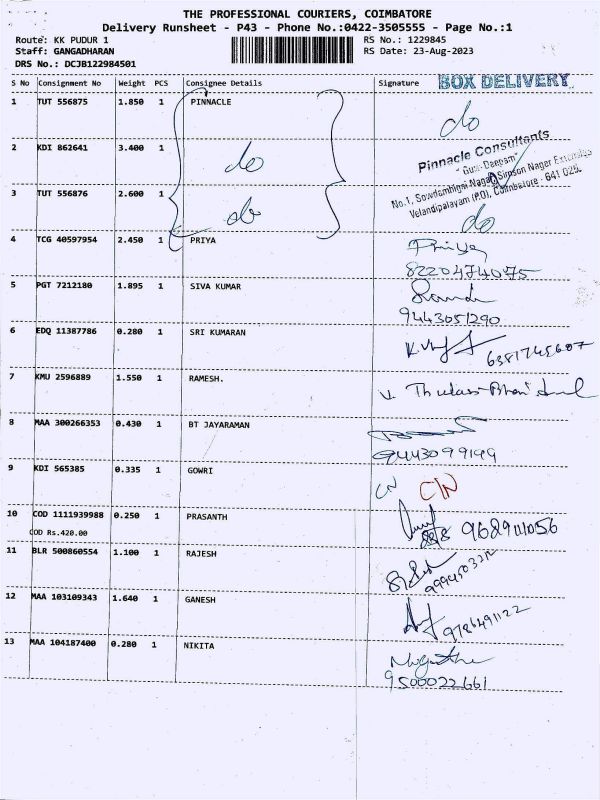 THE PROFESSIONAL COURIERS, COIMBATORE
Delivery Runsheet - P43 - Phone No.:0422-3505555 - Page No.:1
Route: KK PUDUR 1 RS No.: 1229845
Staff: GANGADHARAN RS Date: 23-Aug-2023
DRS No.: DCJB122984501
S No Consignment No Weight PCS Consignee Details Signature BOX DELIVERY
1 TUT 556875 1.850 1 PINNACLE do
2 KDI 862641 3.400 1 do
Pinnacle Consultants
No.1, Sowdambigai Nagar, Simson Nager Extension
Velandipalayam (P.O), Coimbatore - 641 025.
3 TUT 556876 2.600 1 do do
4 TCG 40597954 2.450 1 PRIYA Priya
8220474075
5 PGT 7212180 1.895 1 SIVA KUMAR
9443051290
6 EDQ 11387786 0.280 1 SRI KUMARAN 6381745607
7 KMU 2596889 1.550 1 RAMESH.
8 MAA 300266353 0.430 1 BT JAYARAMAN
9443099199
9 KDI 565385 0.335 1 GOWRI CN C/N
10 COD 1111939988 0.250 1 PRASANTH
COD Rs.420.00 9689111056
11 BLR 500860554 1.100 1 RAJESH
12 MAA 103109343 1.640 1 GANESH
9786491122
13 MAA 104187400 0.280 1 NIKITA
9500022661